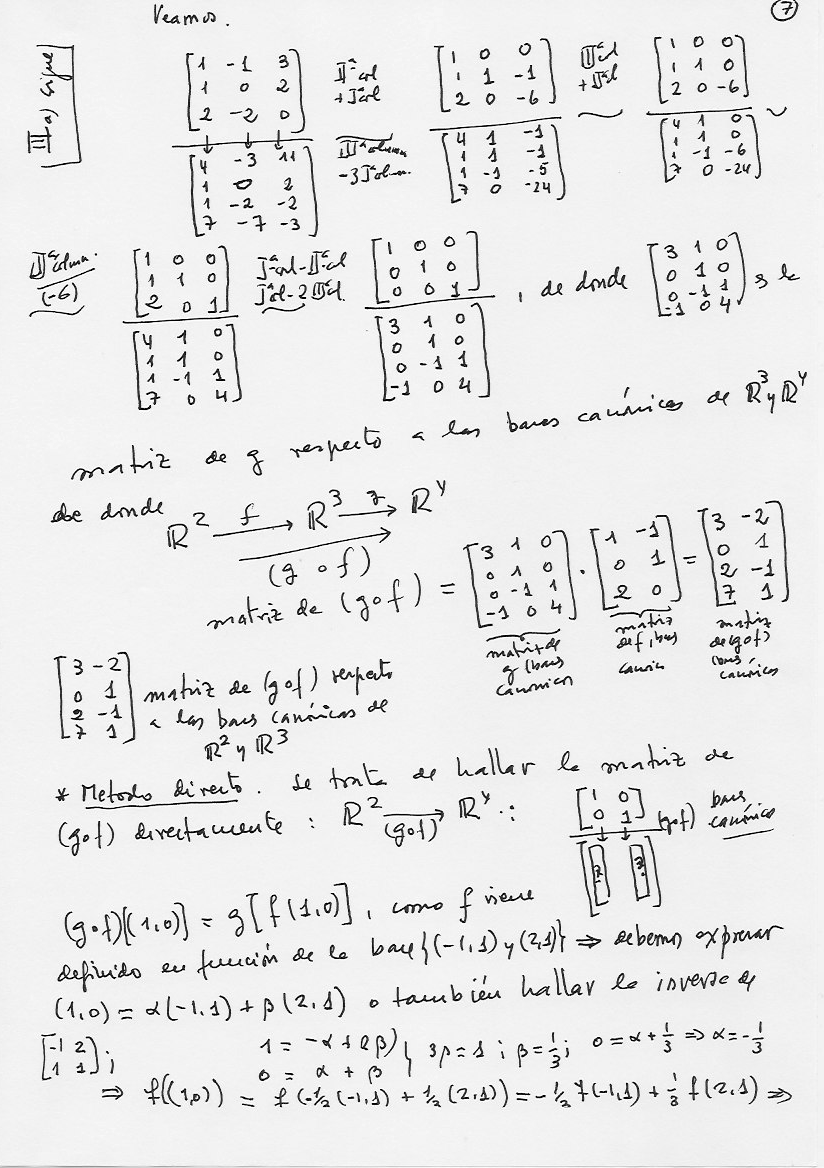 Veamos. 7
III a) sigue
[1 -1 3; 1 0 2; 2 -2 0] IIª col + Iª col [1 0 0; 1 1 -1; 2 0 -6] IIIª col + IIª col [1 0 0; 1 1 0; 2 0 -6]
[4 -3 11; 1 0 2; 1 -2 -2; 7 -7 -3] IIIª columna -3 Iª colum. [4 1 -1; 1 1 -1; 1 -1 -5; 7 0 -24] ~ [4 1 0; 1 1 0; 1 -1 -6; 7 0 -24] ~
IIIª colum. / (-6) [1 0 0; 1 1 0; 2 0 1] Iª col - IIª col Iª col - 2 IIIª col. [1 0 0; 0 1 0; 0 0 1] , de donde [3 1 0; 0 1 0; 0 -1 1; -1 0 4] es la
[4 1 0; 1 1 0; 1 -1 1; 7 0 4] [3 1 0; 0 1 0; 0 -1 1; -1 0 4]
matriz de g respecto a las bases canónicas de R³ y R⁴
de donde
R² f→ R³ g→ R⁴
(g o f)
matriz de (g o f) = [3 1 0; 0 1 0; 0 -1 1; -1 0 4] · [1 -1; 0 1; 2 0] = [3 -2; 0 1; 2 -1; 7 1]
matriz de g (bases canónicas) matriz de f, bases canónic matriz de (g o f) (bases canónicas)
[3 -2; 0 1; 2 -1; 7 1] matriz de (g o f) respecto
a las bases canónicas de
R² y R³
* Metodo directo. Se trata de hallar la matriz de
(g o f) directamente : R² (g o f)→ R⁴ : [1 0; 0 1] (g o f) bases canónica
[? ?]
(g o f)[(1,0)] = g[f(1,0)], como f viene
definido en función de la base {(-1,1) y (2,1)} ⇒ debemos expresar
(1,0) = α(-1,1) + β(2,1) o también hallar la inversa de
[-1 2; 1 1]; 1 = -α + 2β } 0 = α + β } 3β = 1 ; β = 1/3; 0 = α + 1/3 ⇒ α = -1/3
⇒ f((1,0)) = f(-1/3(-1,1) + 1/3(2,1)) = -1/3 f(-1,1) + 1/3 f(2,1) ⇒